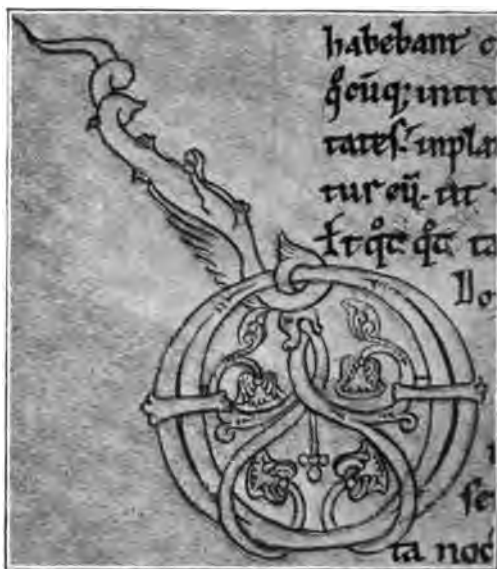 habebant c
q̊cūq; intro
tates. inpla
tur eū. ut
Et q̊t q̊t ta
Do
se
ta noc